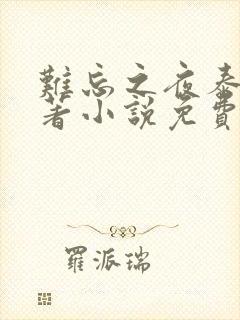 難忘之夜泰
著小説免費
羅派瑞